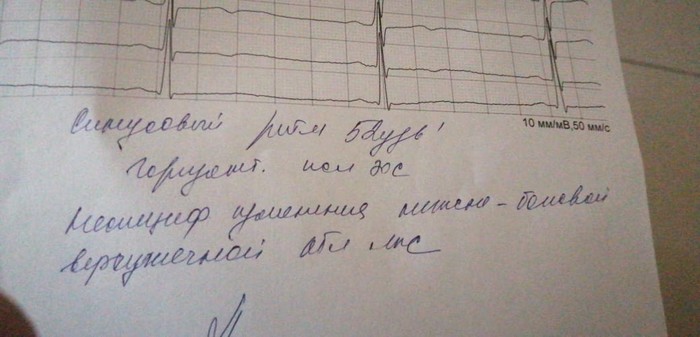 10 мм/мВ,50 мм/с
Синусовый ритм 52уд'
Горизонт. пол ЭОС
Неспециф изменения нижне-боковой
верхушечной обл ЛЖ